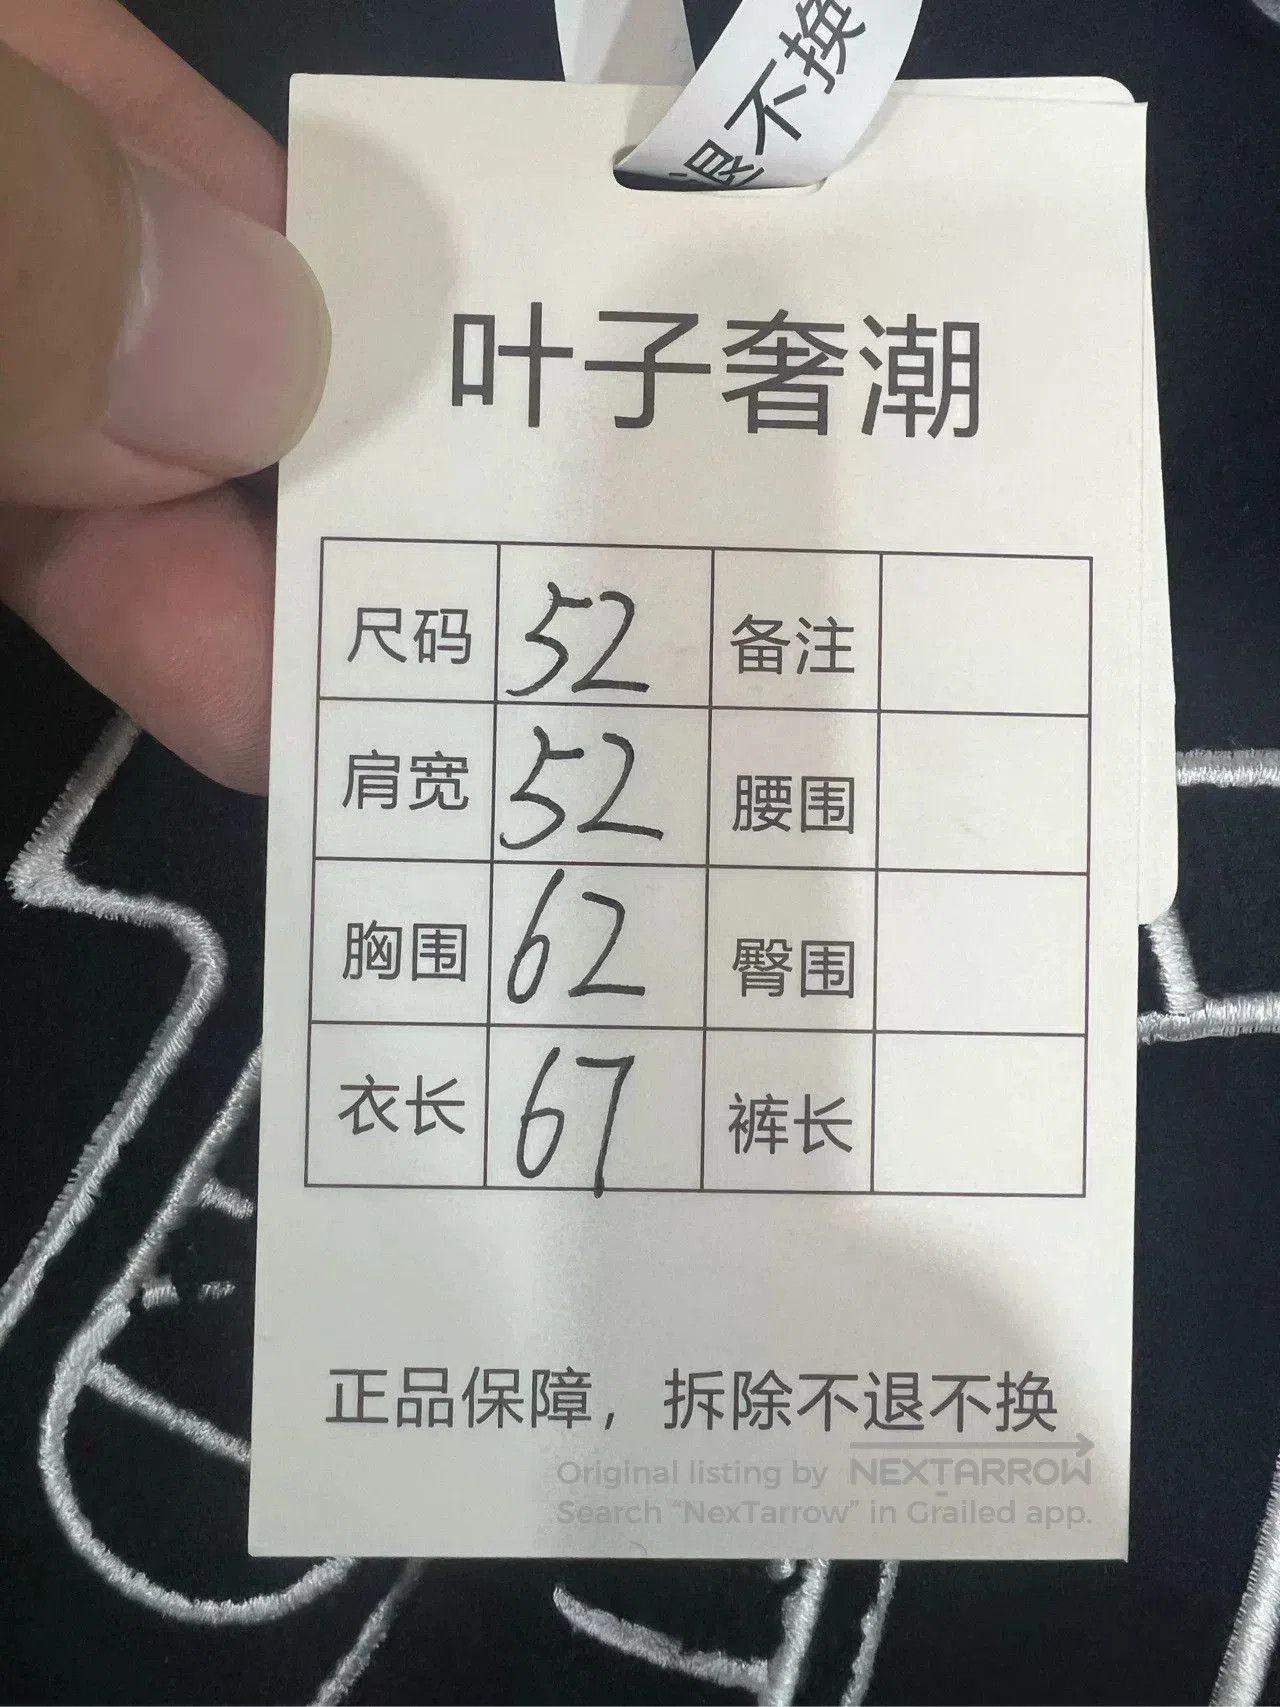 退不换
叶子奢潮
尺码 52 备注
肩宽 52 腰围
胸围 62 臀围
衣长 67 裤长
正品保障，拆除不退不换
Original listing by NEXTARROW
Search “NexTarrow” in Grailed app.